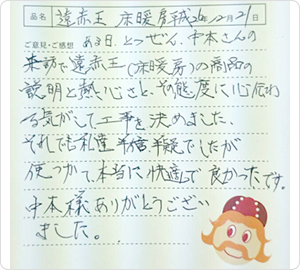 品名 遠赤王 床暖房 平成26年12月21日
ご意見・ご感想 ある日、とつぜん、中本さんの
来訪で遠赤王(床暖房)の商品の
説明と熱心さと、その態度に心伝わ
る気がして工事を決めました、
それでも私達 半信半疑でしたが
使つかて、本当に快適で良かったです。
中本様ありがとうござい
ました。